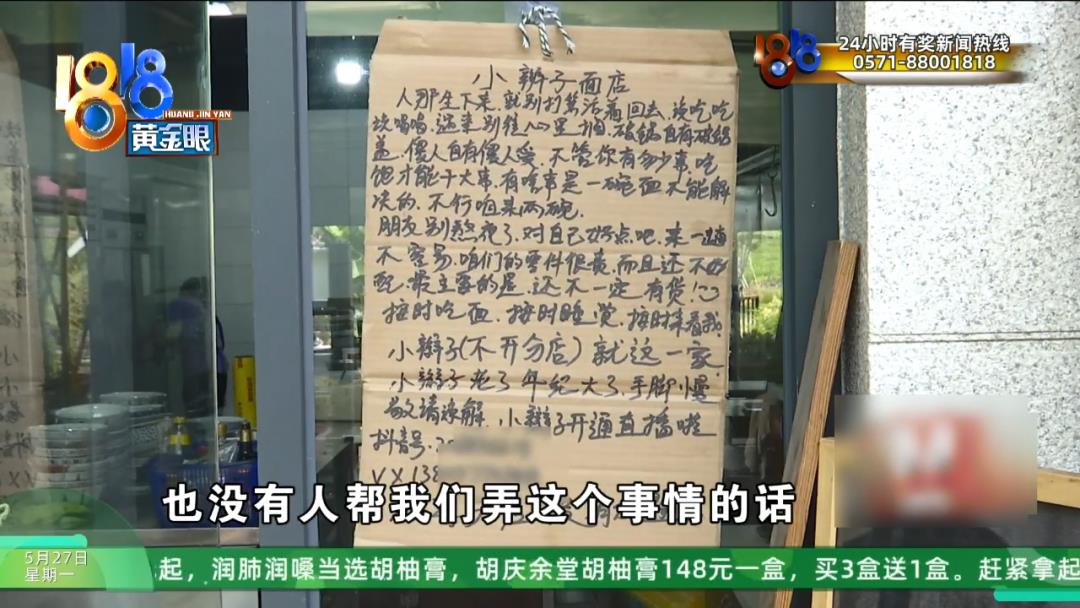 1818
HUANG JIN YAN
黄金眼
1818
24小时有奖新闻热线
0571-88001818
小辫子面店
人那生下来,就别打算活着回去,该吃吃
该喝喝,遇来别往心里搁,破锅自有破锅
盖,傻人自有傻人爱,不管你有多少事,吃
饱才能干大事,有啥事是一碗面不能解
决的,不行咱来两碗.
朋友别熬夜了,对自己好点吧,来一趟
不容易,咱们的零件很贵,而且还不好
配,最主要的是,还不一定有货!
按时吃面,按时睡觉,按时来看我
小辫子(不开分店)就这一家.
小辫子老了年纪大了,手脚慢
敬请谅解.小辫子开通直播啦
抖音号:
VX138
也没有人帮我们弄这个事情的话
5月27日
星期一
起,润肺润嗓当选胡柚膏,胡庆余堂胡柚膏148元一盒,买3盒送1盒。赶紧拿起